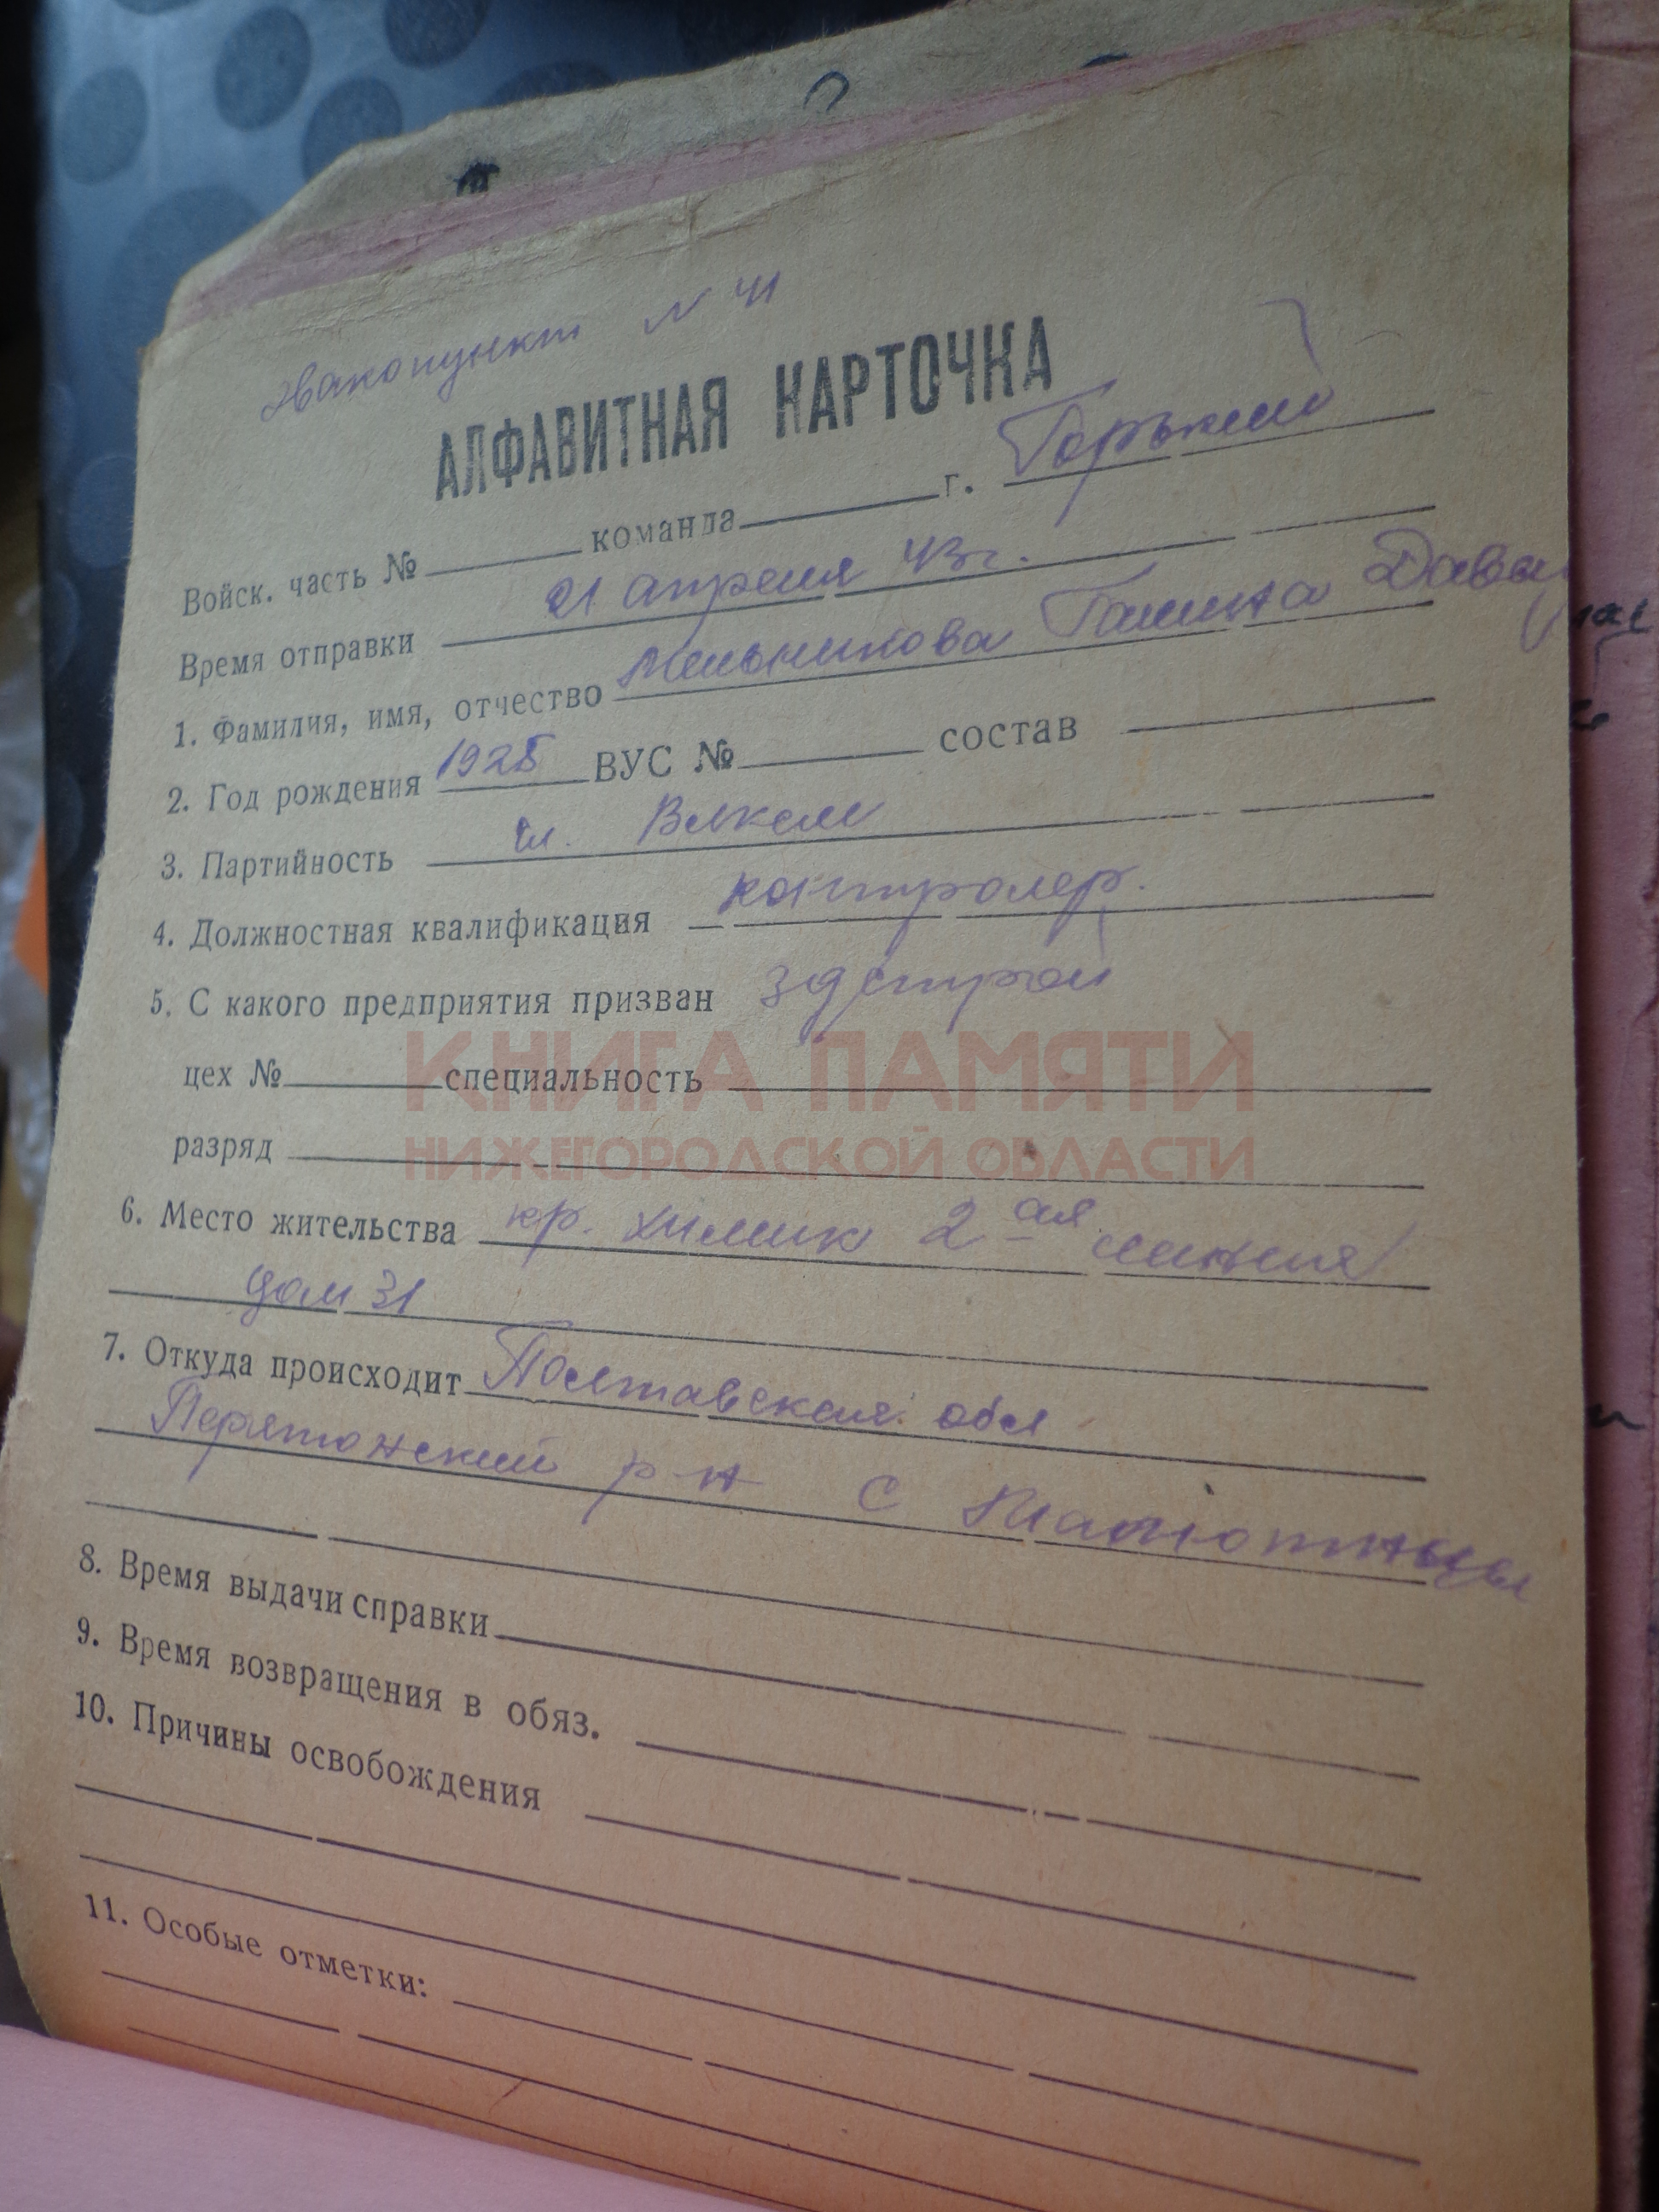 Эвакопункт N 41
АЛФАВИТНАЯ КАРТОЧКА
Войск. часть № команда г. Горький
Время отправки 21 апреля 43 г.
1. Фамилия, имя, отчество Мельникова Галина Давы
2. Год рождения 1925 ВУС № состав
3. Партийность чл. Влксм
4. Должностная квалификация контролер.
5. С какого предприятия призван
КНИГА ПАМЯТИ
цех № специальность
НИЖЕГОРОДСКОЙ ОБЛАСТИ
разряд
6. Место жительства кр. химик 2-ая линия
дом 31
7. Откуда происходит Полтавская обл
р-н с
8. Время выдачи справки
9. Время возвращения в обяз.
10. Причины освобождения
11. Особые отметки: